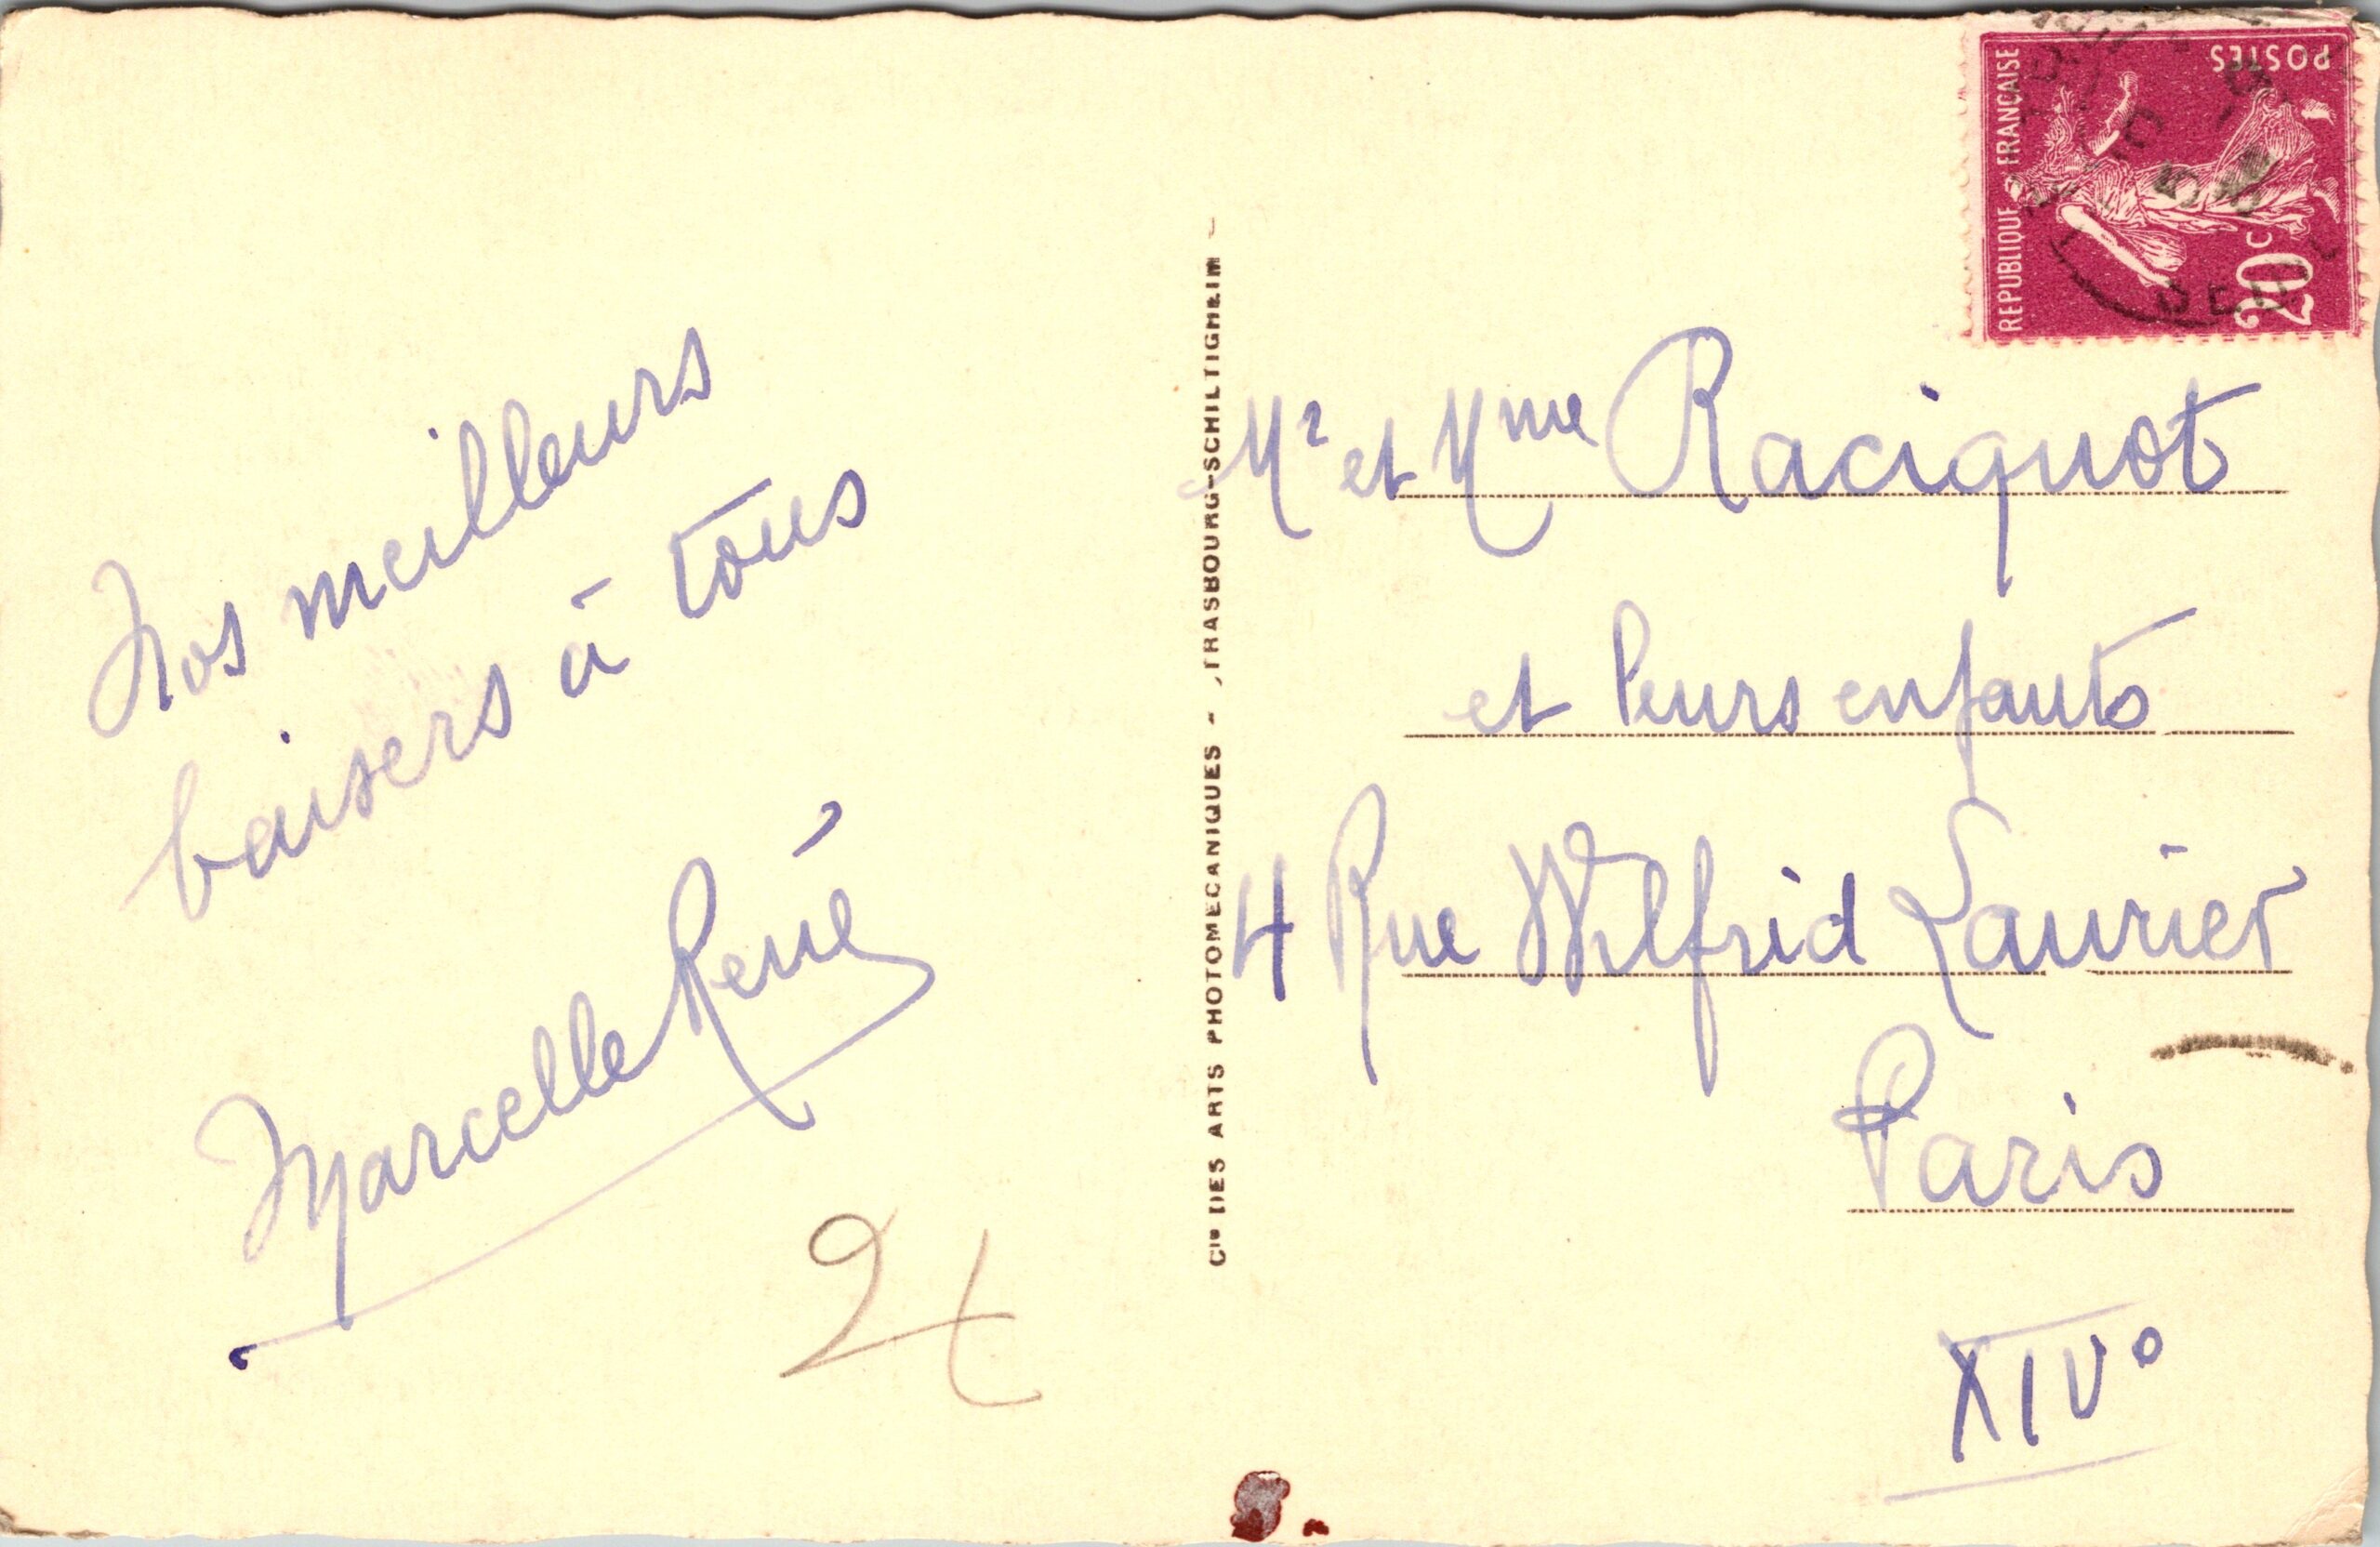 Nos meilleurs
baisers à tous
Marcelle René
2t
Cie DES ARTS PHOTOMECANIQUES - STRASBOURG-SCHILTIGHEIM -
REPUBLIQUE FRANÇAISE
POSTES
20c
Mr et Mme Raciquot
et leurs enfants
4 Rue Wilfrid Laurier
Paris
XIVo